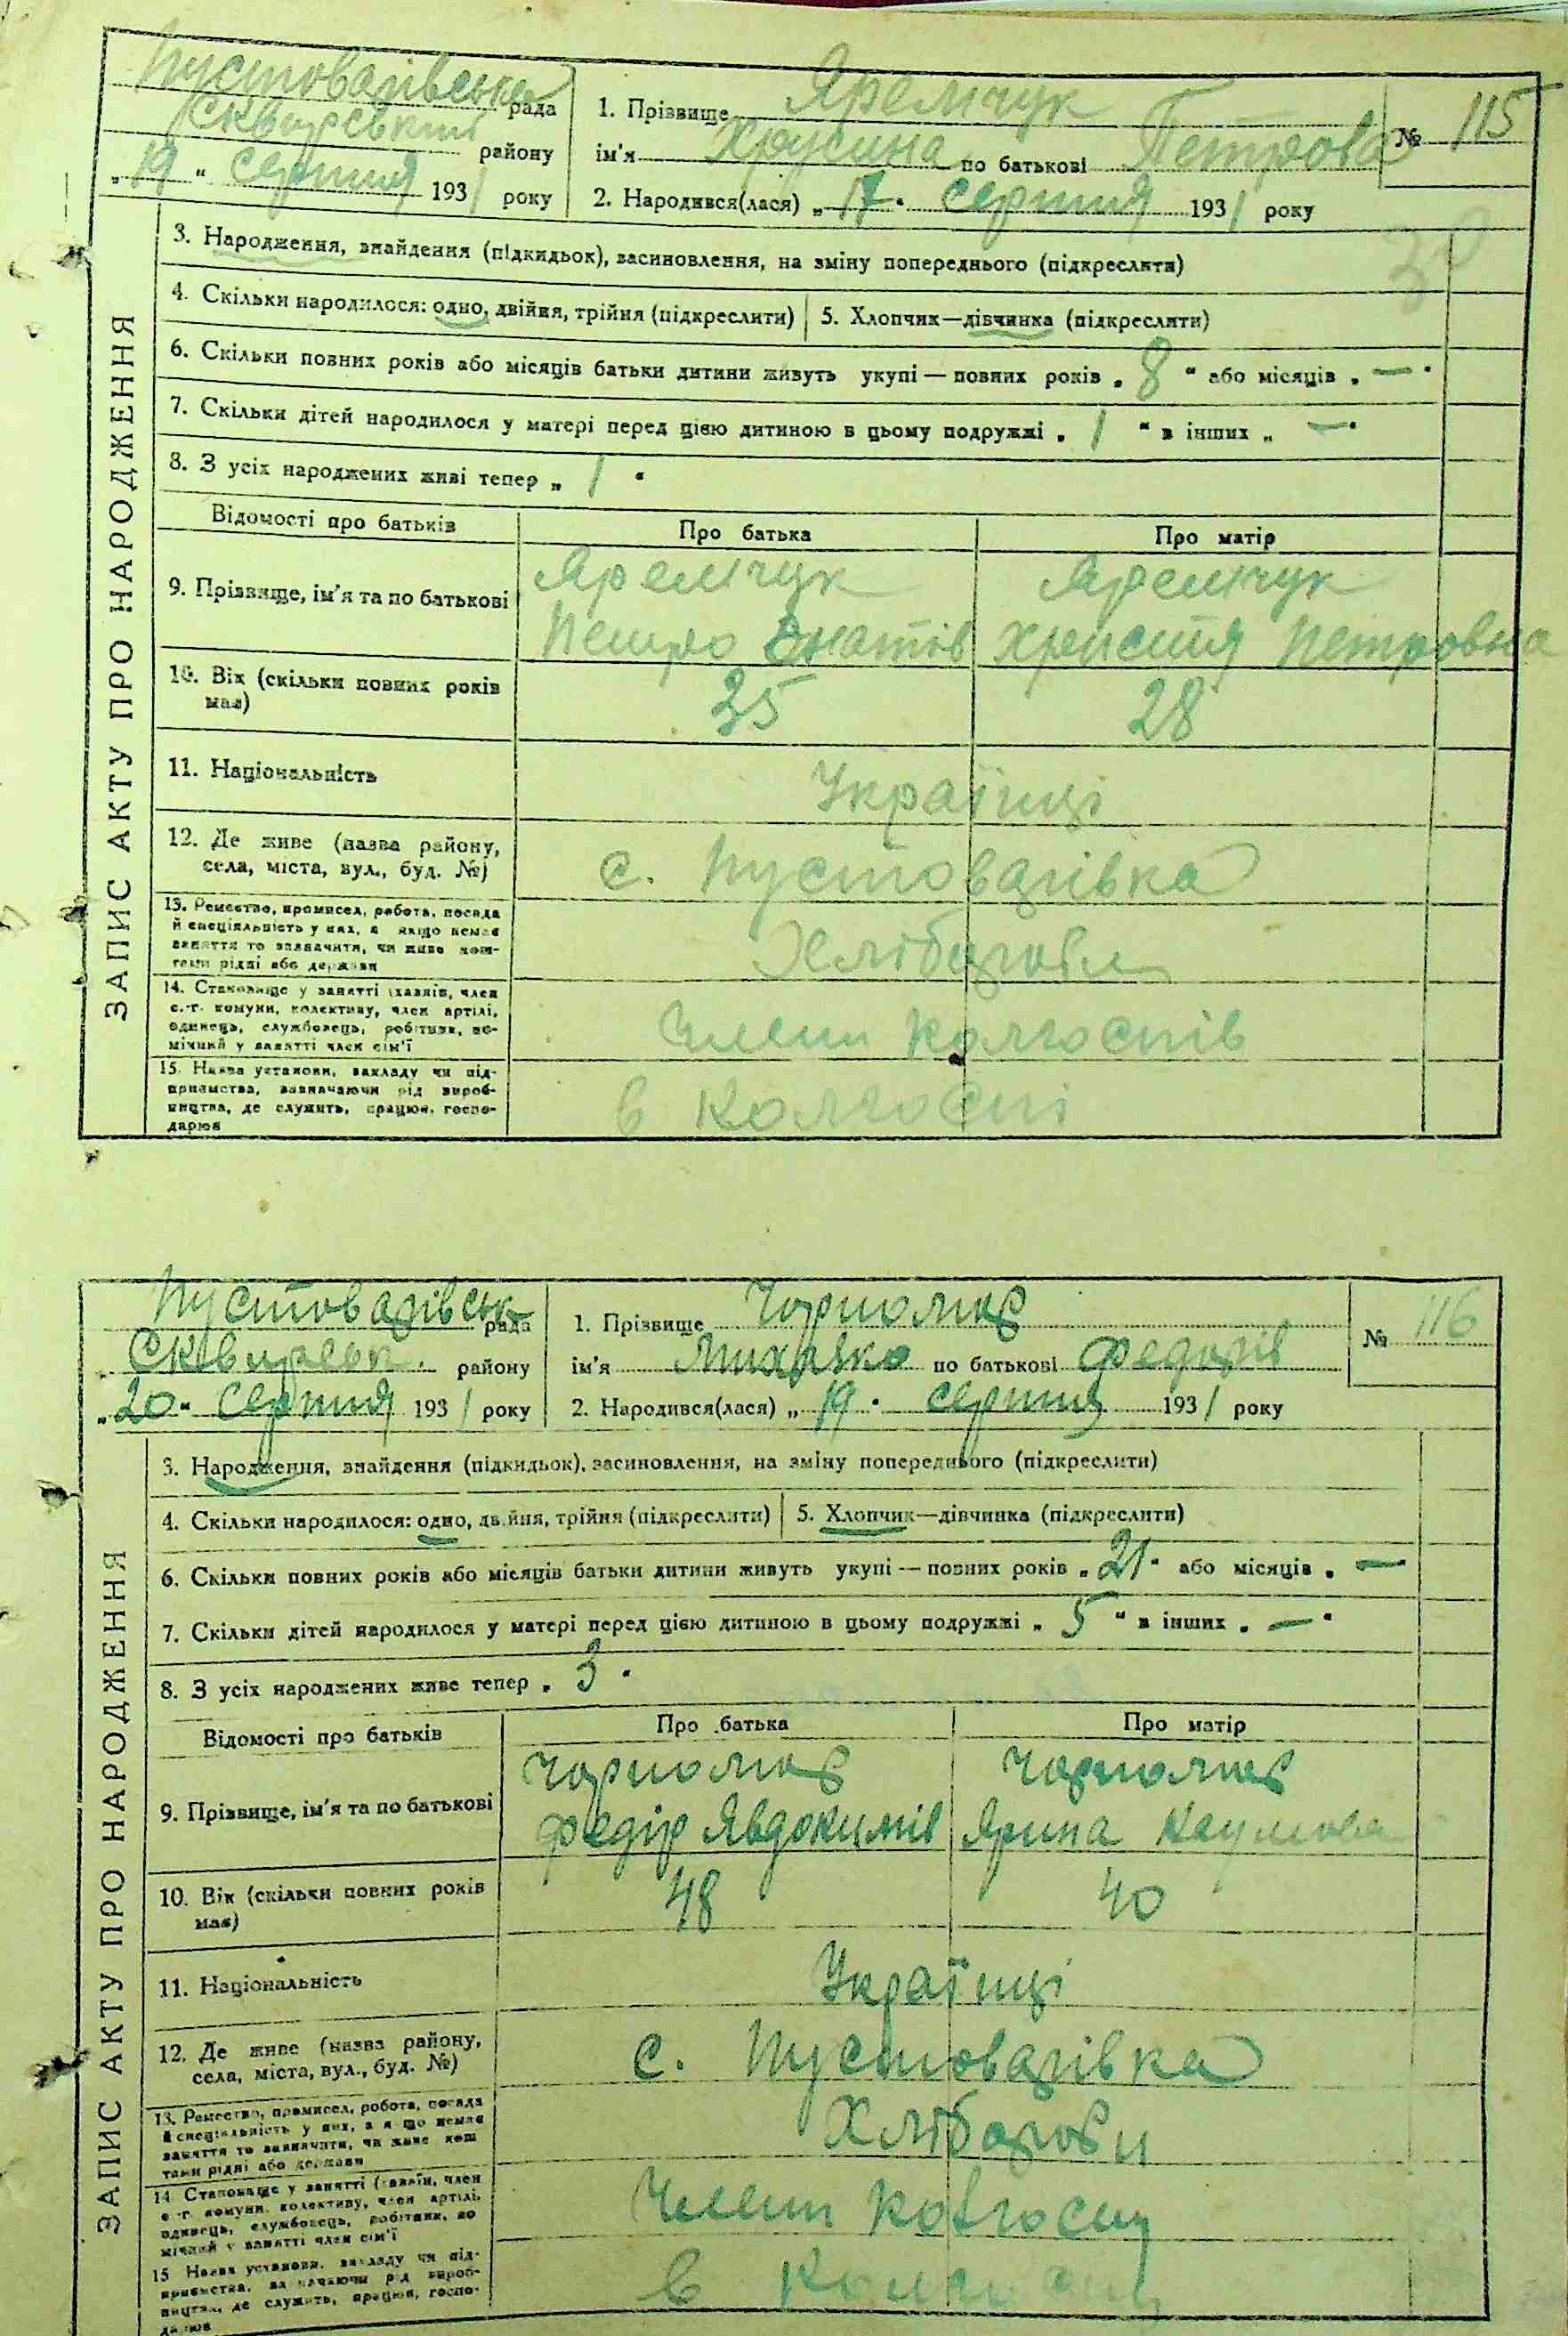 Пустоварівська рада
Сквирський району
„19“ серпня 1931 року
1. Прізвище Яремчук
ім'я Хрусина по батькові Петрова
№ 115
2. Народився(лася) „17“ серпня 1931 року
3. Народження, знайдення (підкидьок), засиновлення, на зміну попереднього (підкреслити)
4. Скільки народилося: одно, двійня, трійня (підкреслити) 5. Хлопчик—дівчинка (підкреслити)
6. Скільки повних років або місяців батьки дитини живуть укупі — повних років „8“ або місяців „—“
7. Скільки дітей народилося у матері перед цією дитиною в цьому подружжі „1“ в інших „—“
8. З усіх народжених живі тепер „1“
ЗАПИС АКТУ ПРО НАРОДЖЕННЯ
Відомості про батьків Про батька Про матір
9. Прізвище, ім'я та по батькові
Яремчук
Петро
Яремчук
Хрепстя Петровна
10. Вік (скільки повних років має) 35 28
11. Національність Українці
12. Де живе (назва району, села, міста, вул., буд. №) с. Пустоварівка
13. Ремество, промисел, робота, посада
й спеціяльність у них, а якщо немає
заняття то зазначити, чи живе кош-
тами рідні або держави
Хлібороби
14. Становище у занятті (хазяїн, член
с.-г. комуни, колективу, член артілі,
одинець, службовець, робітник, по-
мічний у занятті член сім'ї
Члени колгоспів
15. Назва установи, закладу чи під-
приємства, зазначаючи рід вироб-
ництва, де служить, працює, госпо-
дарює
в колгоспі
Пустоварівськ рада
Сквирськ. району
„20“ серпня 1931 року
1. Прізвище Чорномаз
ім'я Михалко по батькові Федорів
№ 116
2. Народився(лася) „19“ серпня 1931 року
3. Народження, знайдення (підкидьок), засиновлення, на зміну попереднього (підкреслити)
4. Скільки народилося: одно, двійня, трійня (підкреслити) 5. Хлопчик—дівчинка (підкреслити)
6. Скільки повних років або місяців батьки дитини живуть укупі — повних років „21“ або місяців „—“
7. Скільки дітей народилося у матері перед цією дитиною в цьому подружжі „5“ в інших „—“
8. З усіх народжених живе тепер „3“
ЗАПИС АКТУ ПРО НАРОДЖЕННЯ
Відомості про батьків Про батька Про матір
9. Прізвище, ім'я та по батькові
Чорномаз
Федір Явдокимів
Чорномаз
Ярина Наумова
10. Вік (скільки повних років має) 48 40
11. Національність Українці
12. Де живе (назва району, села, міста, вул., буд. №) с. Пустоварівка
13. Ремество, промисел, робота, посада
й спеціяльність у них, а якщо немає
заняття то зазначити, чи живе кош
тами рідні або держави
Хлібороби
14 Становище у занятті (хазяїн, член
с.-г. комуни, колективу, член артілі,
одинець, службовець, робітник, по
мічний у занятті член сім'ї
Члени колгоспу
15 Назва установи, закладу чи під-
приємства, зазначаючи рід вироб-
ництва, де служить, працює, госпо-
дарює
в